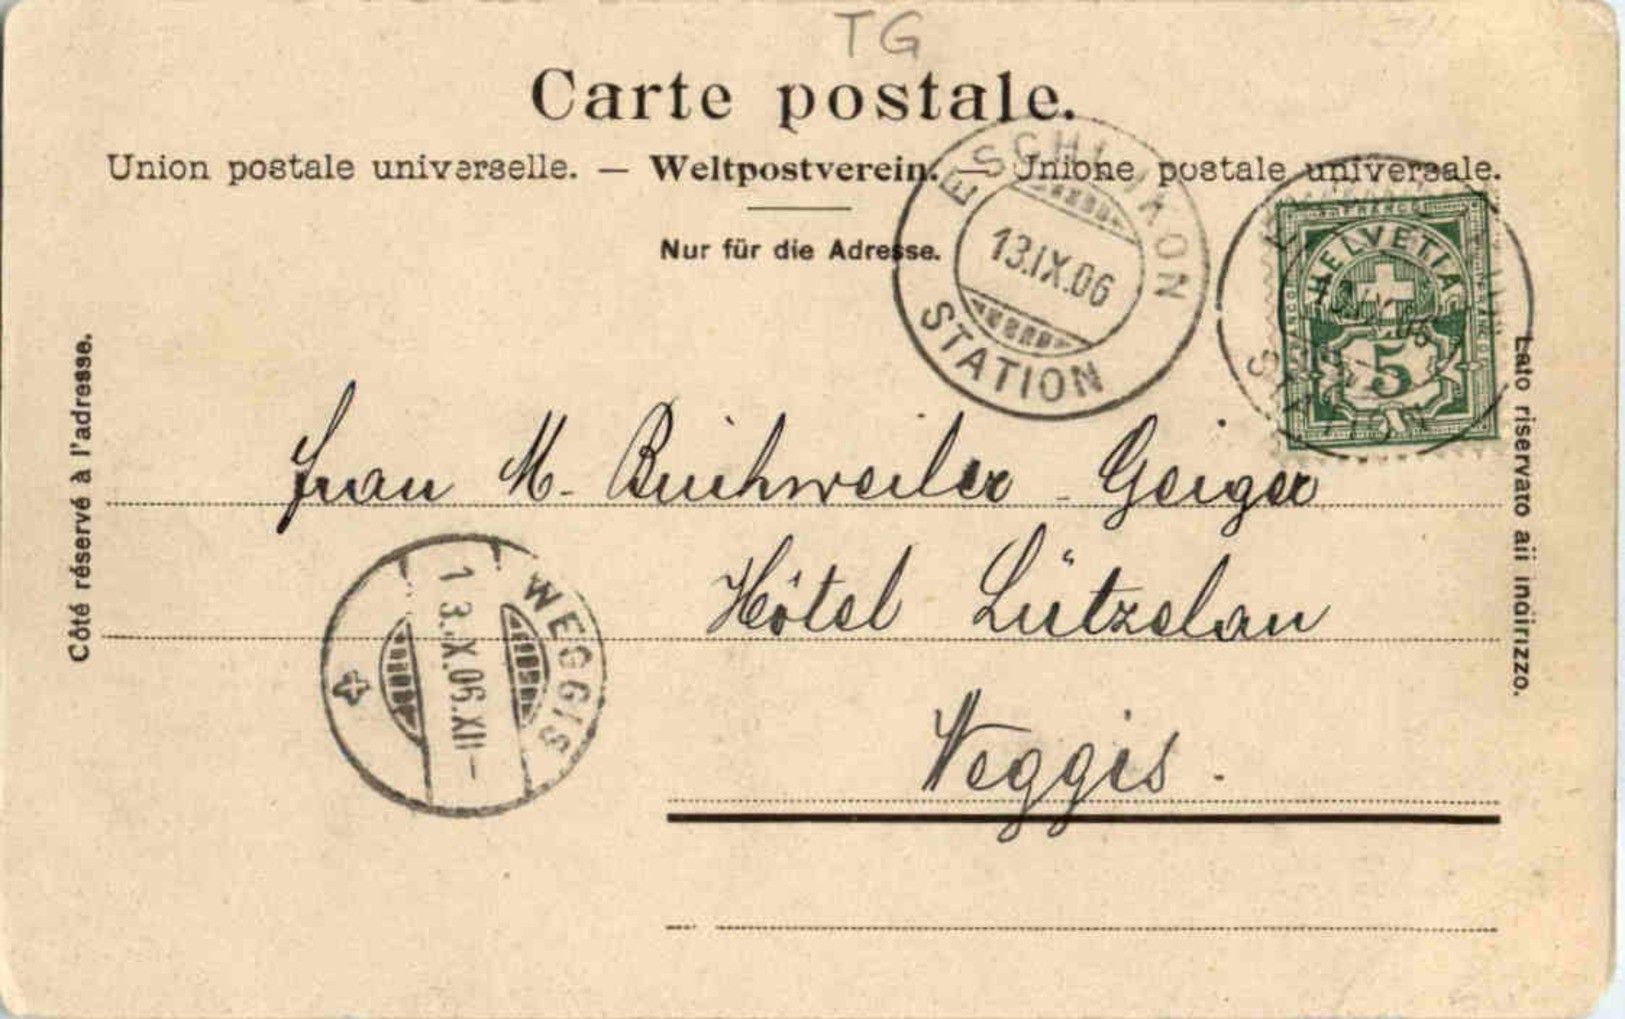 TG
Carte postale.
Union postale universelle. — Weltpostverein. — Unione postale universale.
Nur für die Adresse.
ESCHLIKON
13.IX.06
STATION
FRANCO
HELVETIA
5
STATION
Côté réservé à l'adresse.
Lato riservato all indirizzo.
Frau M. Buchweiler-Geiger
Hôtel Lützelau
Weggis.
WEGGIS
13.IX.06.XII-